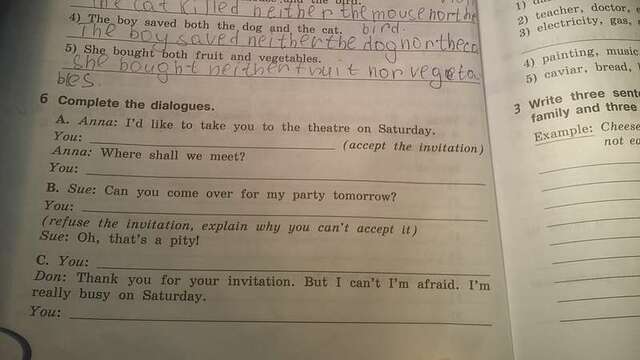 The cat killed neither the mouse nor the
bird.
4) The boy saved both the dog and the cat.
The boy saved neither the dog nor the ca
5) She bought both fruit and vegetables.
She bought neither fruit nor vegeta
bles.
6 Complete the dialogues.
A. Anna: I'd like to take you to the theatre on Saturday.
You: (accept the invitation)
Anna: Where shall we meet?
You:
B. Sue: Can you come over for my party tomorrow?
You:
(refuse the invitation, explain why you can't accept it)
Sue: Oh, that's a pity!
C. You:
Don: Thank you for your invitation. But I can't I'm afraid. I'm
really busy on Saturday.
You:
2) teacher, doctor,
3) electricity, gas,
4) painting, music
5) caviar, bread,
3 Write three sent
family and three
Example: Cheese
not ea